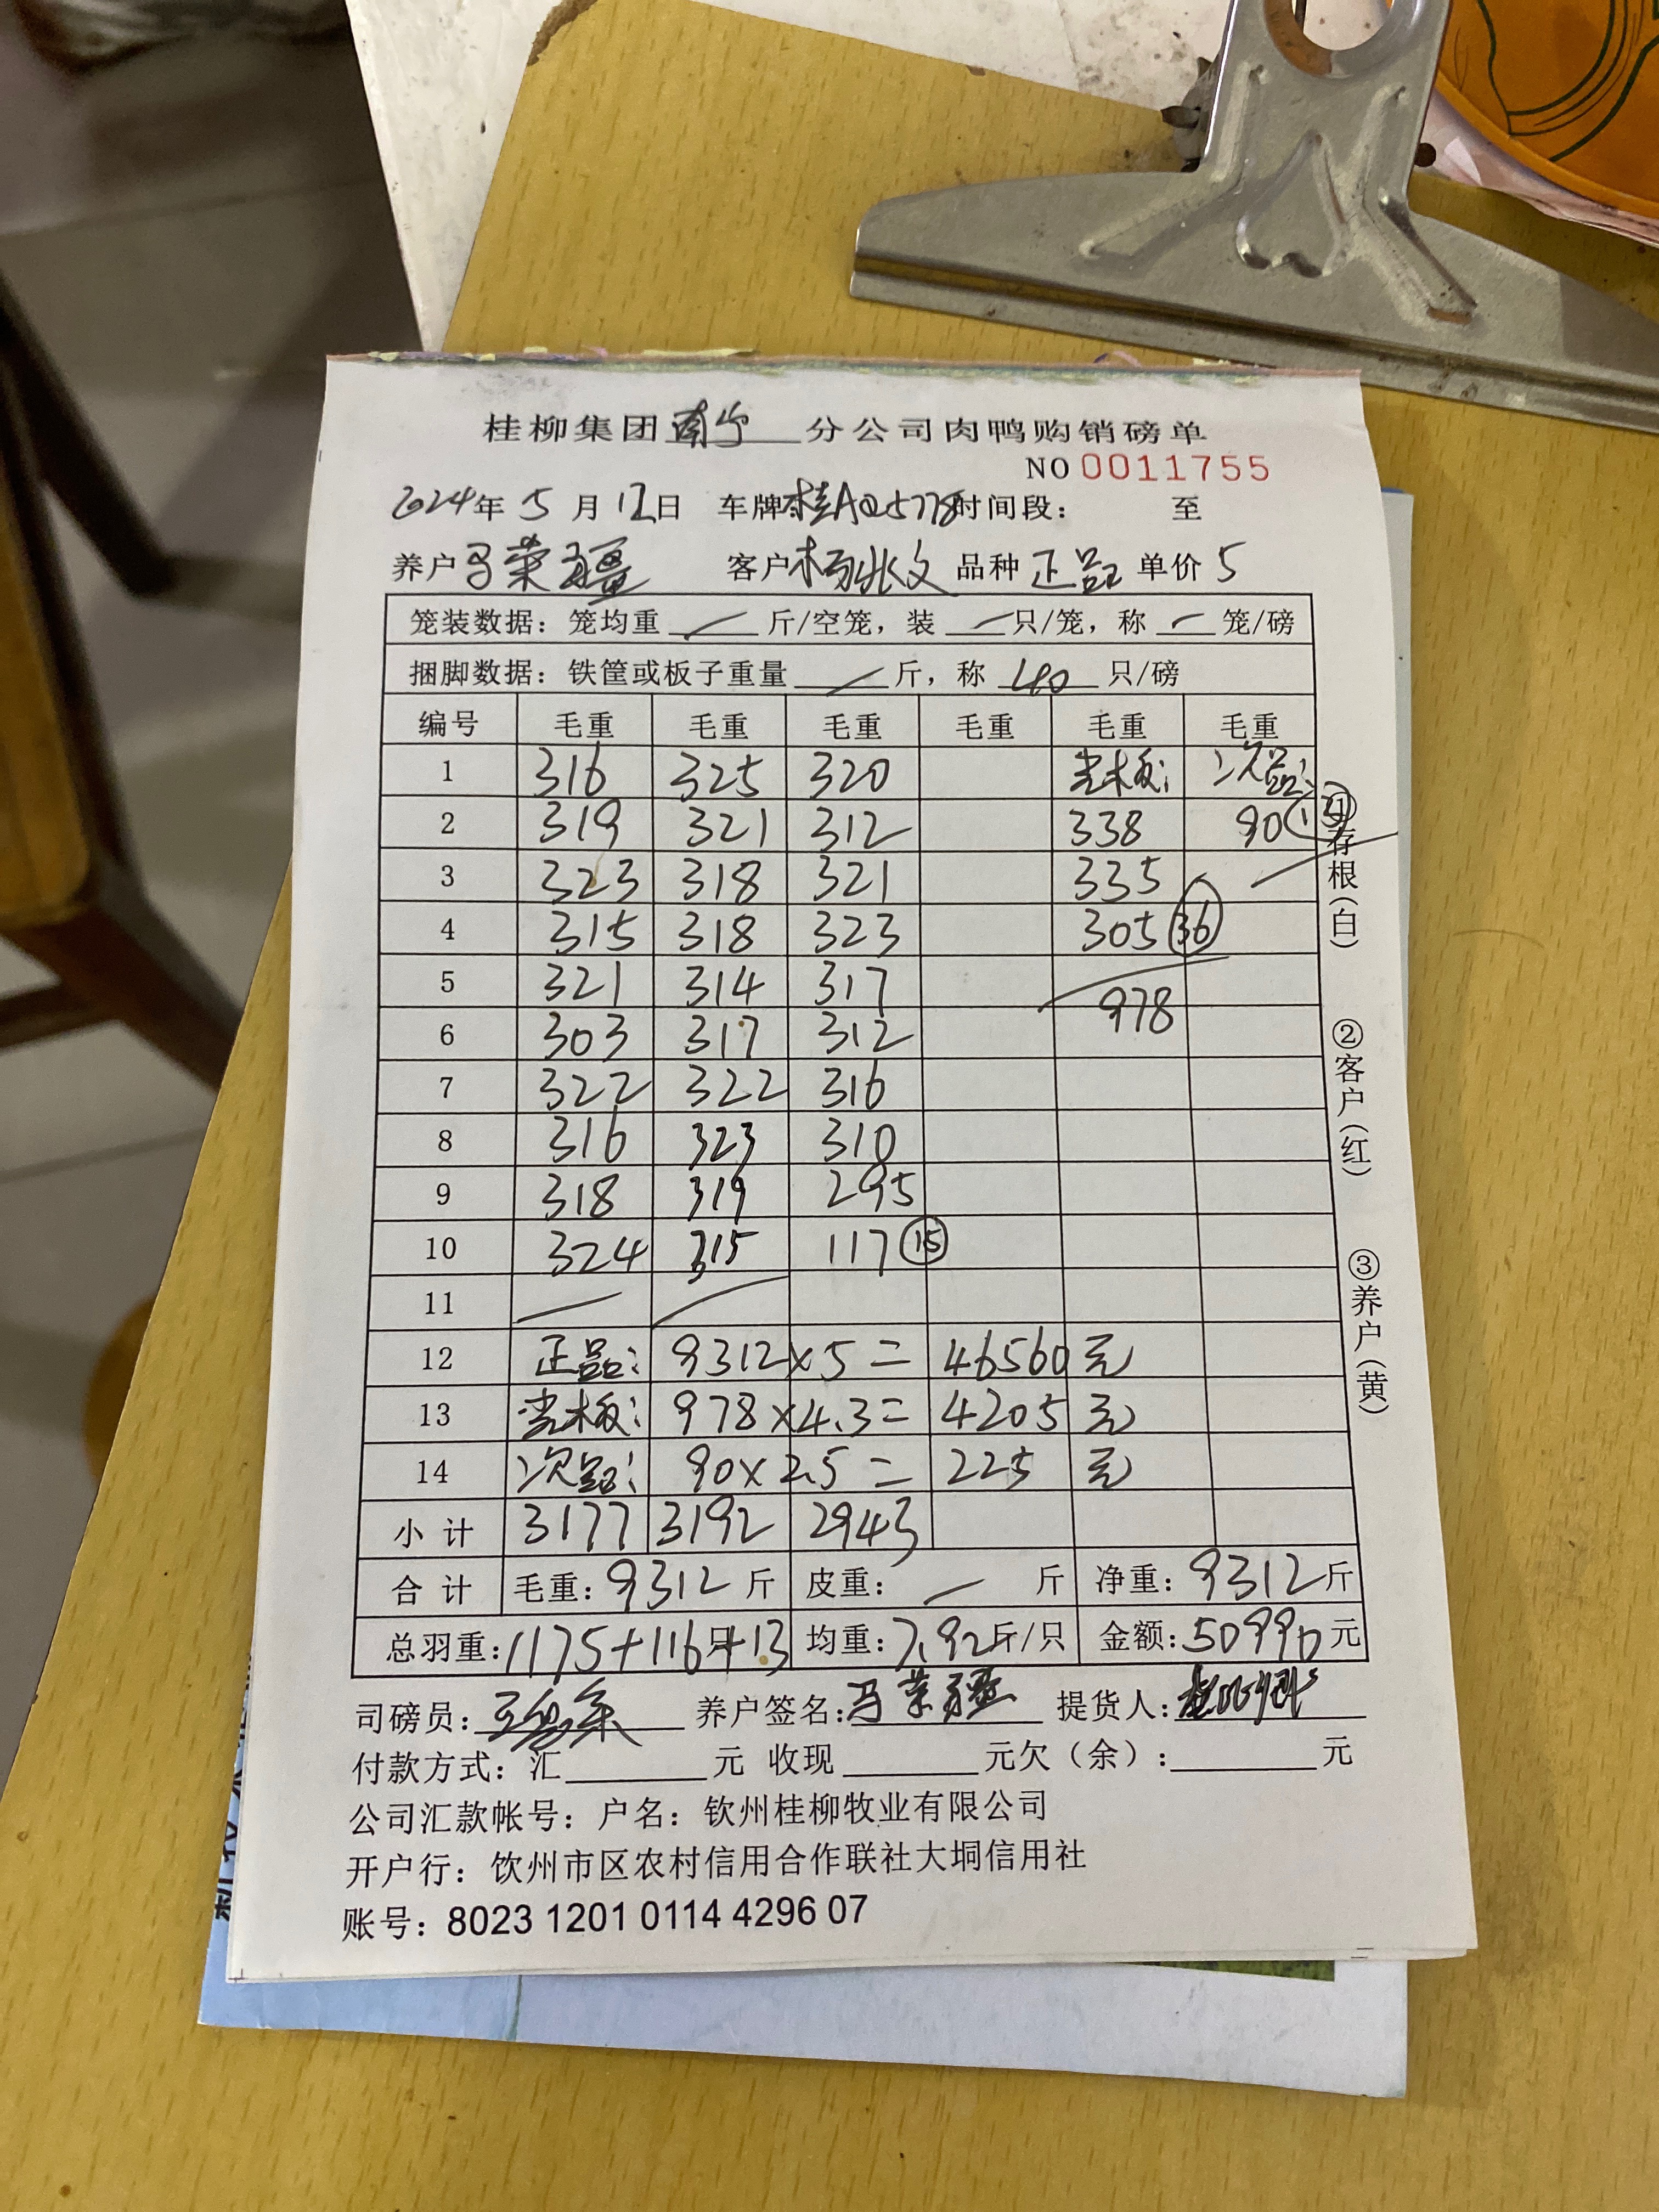 桂柳集团南宁分公司肉鸭购销磅单
NO 0011755
2024年 5 月 12日 车牌:桂AQ5778时间段: 至
养户 马荣疆 客户 杨兆文 品种 正品 单价 5
笼装数据: 笼均重 — 斤/空笼, 装 — 只/笼, 称 — 笼/磅
捆脚数据: 铁筐或板子重量 — 斤, 称 40 只/磅
编号 毛重 毛重 毛重 毛重 毛重 毛重
1 316 325 320 光板: 次品:
2 319 321 312 338 90 (13)
3 323 318 321 335
4 315 318 323 305 (36)
5 321 314 317 978
6 303 317 312
7 322 322 316
8 316 323 310
9 318 319 295
10 324 315 117 (15)
11
12 正品: 9312×5= 46560 元
13 光板: 978×4.3= 4205 元
14 次品: 90×2.5= 225 元
小计 3177 3192 2943
合计 毛重: 9312 斤 皮重: — 斤 净重: 9312斤
总羽重: 1175+116只+13 均重: 7.92斤/只 金额: 50990 元
司磅员: 养户签名: 马荣疆 提货人:
付款方式: 汇 元 收现 元欠(余): 元
公司汇款帐号: 户名: 钦州桂柳牧业有限公司
开户行: 钦州市区农村信用合作联社大垌信用社
账号: 8023 1201 0114 4296 07
①存根(白)
②客户(红)
③养户(黄)